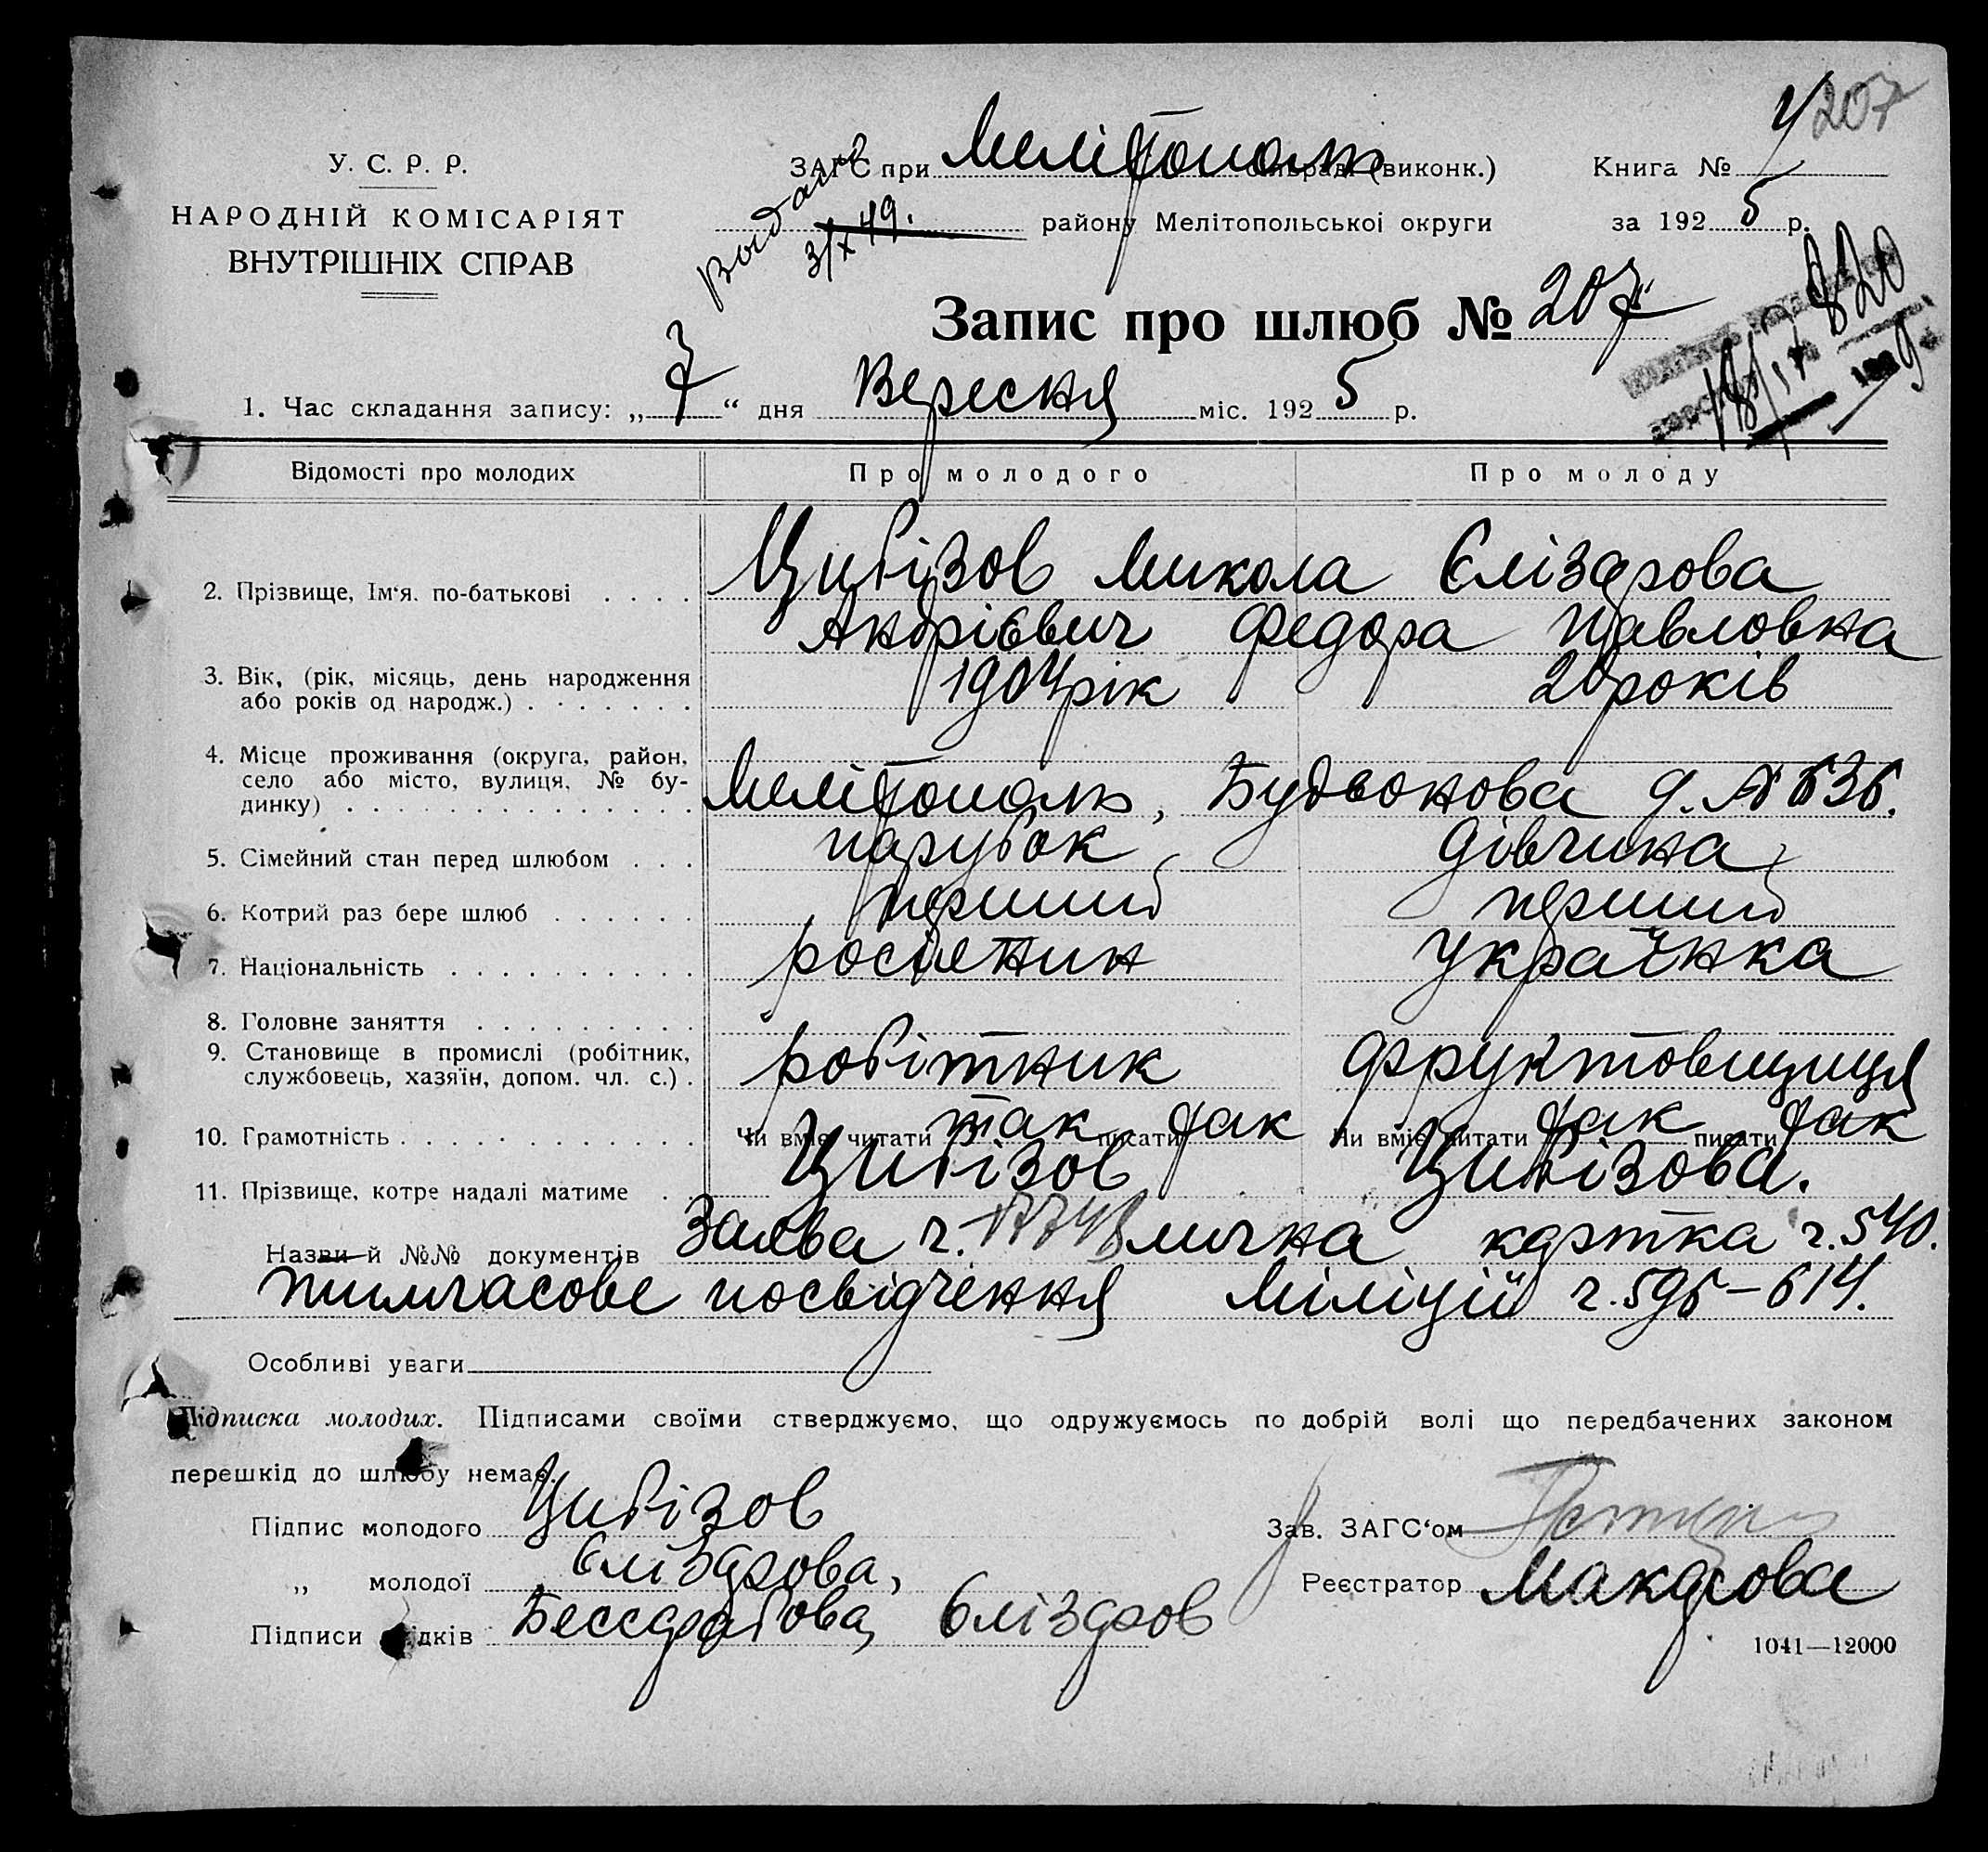 207
У. С. Р. Р.
НАРОДНІЙ КОМІСАРІЯТ
ВНУТРІШНІХ СПРАВ
ЗАГС при Мелітополь сільраді (виконк.)
Книга №
району Мелітопольської округи
за 1925 р.
Выдано
3/X 49.
Запис про шлюб № 207
820
1. Час складання запису: „7“ дня Вересня міс. 1925 р.
Відомості про молодих Про молодого Про молоду
2. Прізвище, Ім‘я, по-батькові . . . . Цибізов Микола Єлізарова
Андрієвич Федора Павловна
3. Вік, (рік, місяць, день народження
або років од народж.) . . . . . . . 1904 рік 20 років
4. Місце проживання (округа, район,
село або місто, вулиця, № бу-
динку) . . . . . . . . . . . . . . Мелітополь, Будьонова д. № 636.
5. Сімейний стан перед шлюбом . . . парубок дівчина
6. Котрий раз бере шлюб . . . . . . перший перший
7. Національність . . . . . . . . . . росіянин українка
8. Головне заняття . . . . . . . . .
9. Становище в промислі (робітник,
службовець, хазяїн, допом. чл. с.) . робітник фруктовщиця
10. Грамотність . . . . . . . . . . . . Чи вміє читати так писати так Чи вміє читати так писати так
11. Прізвище, котре надалі матиме . . Цибізов Цибізова.
Назви й №№ документів Заява ч. лична картка ч. 540.
тимчасове посвідчення Міліції ч. 595–614.
Особливі уваги
Підписка молодих. Підписами своїми стверджуємо, що одружуємось по добрій волі що передбачених законом
перешкід до шлюбу немає.
Підпис молодого Цибізов
Зав. ЗАГС‘ом
„ молодої Єлізарова,
Реєстратор Макарова
Підписи свідків Бессарабова, Єлізаров
1041—12000